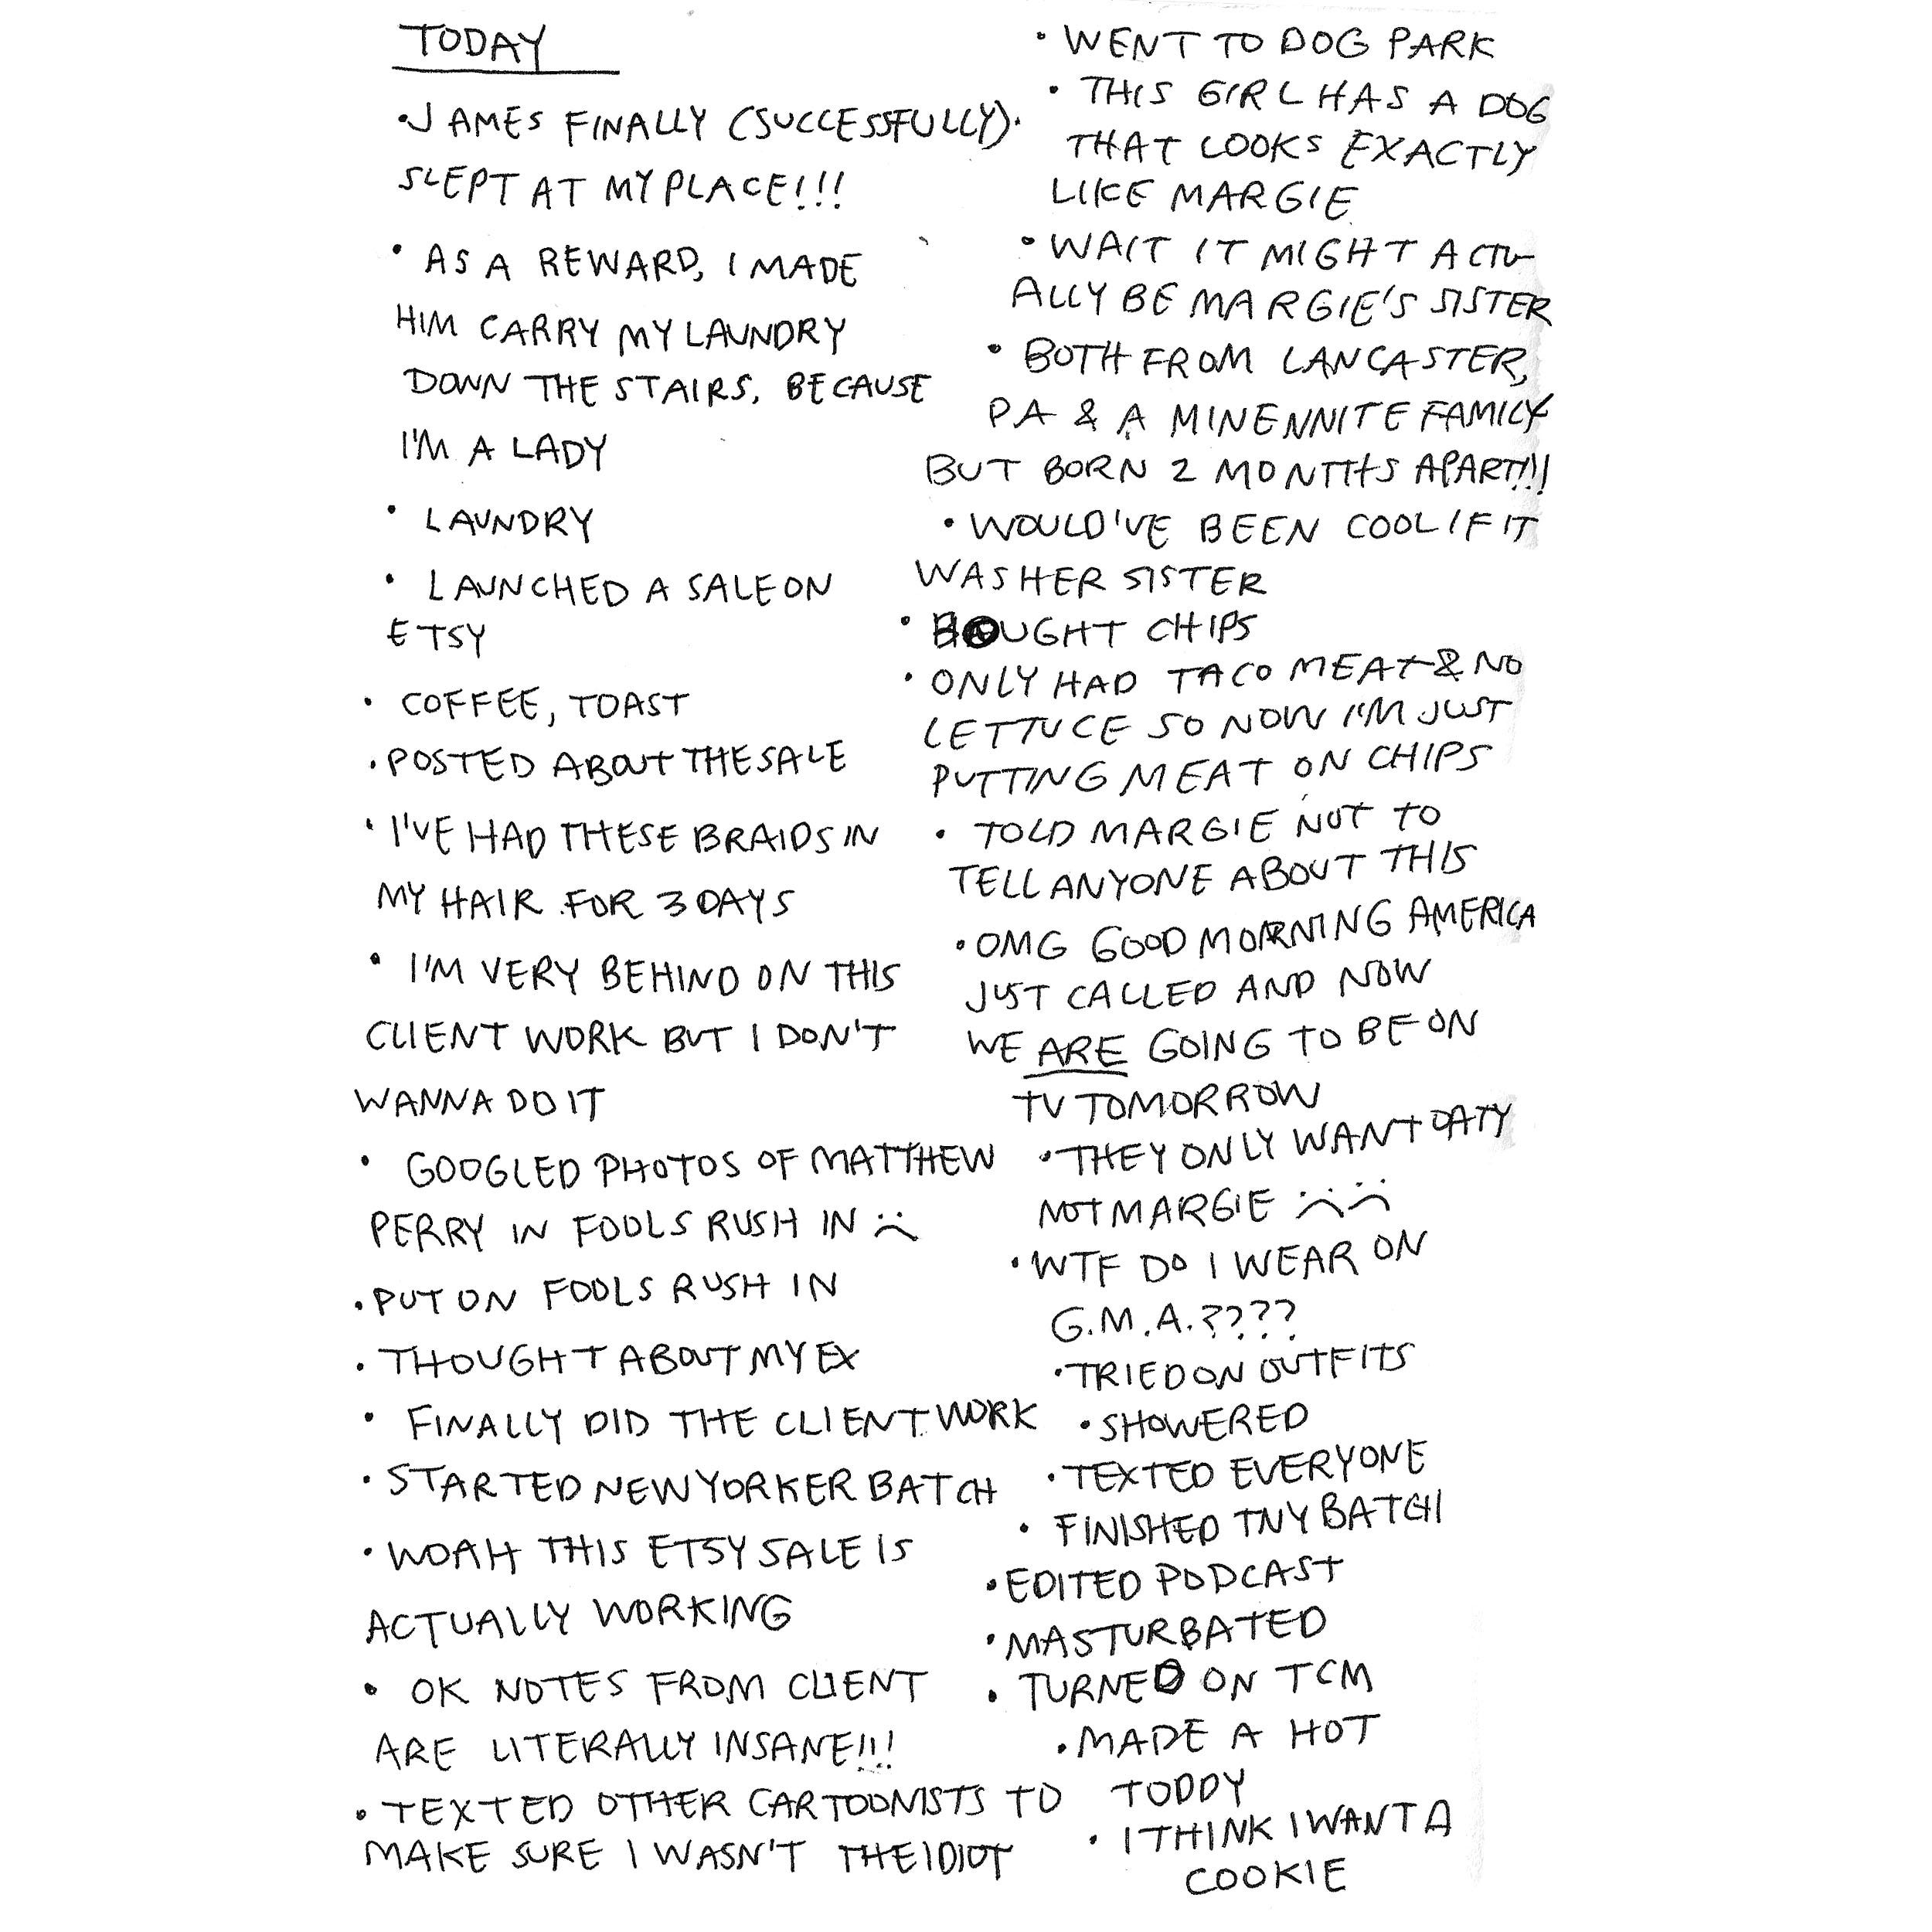 TODAY
•JAMES FINALLY (SUCCESSFULLY).
SLEPT AT MY PLACE!!!
• AS A REWARD, I MADE
HIM CARRY MY LAUNDRY
DOWN THE STAIRS, BECAUSE
I'M A LADY
• LAUNDRY
• LAUNCHED A SALE ON
ETSY
• COFFEE, TOAST
• POSTED ABOUT THE SALE
• I'VE HAD THESE BRAIDS IN
MY HAIR FOR 3 DAYS
• I'M VERY BEHIND ON THIS
CLIENT WORK BUT I DON'T
WANNA DO IT
• GOOGLED PHOTOS OF MATTHEW
PERRY IN FOOLS RUSH IN :(
• PUT ON FOOLS RUSH IN
• THOUGHT ABOUT MY EX
• FINALLY DID THE CLIENT WORK
• STARTED NEW YORKER BATCH
• WOAH THIS ETSY SALE IS
ACTUALLY WORKING
• OK NOTES FROM CLIENT
ARE LITERALLY INSANE!!!
• TEXTED OTHER CARTOONISTS TO
MAKE SURE I WASN'T THE IDIOT
• WENT TO DOG PARK
• THIS GIRL HAS A DOG
THAT LOOKS EXACTLY
LIKE MARGIE
• WAIT IT MIGHT ACTU-
ALLY BE MARGIE'S SISTER
• BOTH FROM LANCASTER,
PA & A MINENNITE FAMILY
BUT BORN 2 MONTHS APART!!!
• WOULD'VE BEEN COOL IF IT
WAS HER SISTER
• BOUGHT CHIPS
• ONLY HAD TACO MEAT & NO
LETTUCE SO NOW I'M JUST
PUTTING MEAT ON CHIPS
• TOLD MARGIE NOT TO
TELL ANYONE ABOUT THIS
• OMG GOOD MORNING AMERICA
JUST CALLED AND NOW
WE ARE GOING TO BE ON
TV TOMORROW
• THEY ONLY WANT OATY
NOT MARGIE :( :(
• WTF DO I WEAR ON
G.M.A.????
• TRIED ON OUTFITS
• SHOWERED
• TEXTED EVERYONE
• FINISHED TNY BATCH
• EDITED PODCAST
• MASTURBATED
• TURNED ON TCM
• MADE A HOT
TODDY
• I THINK I WANT A
COOKIE